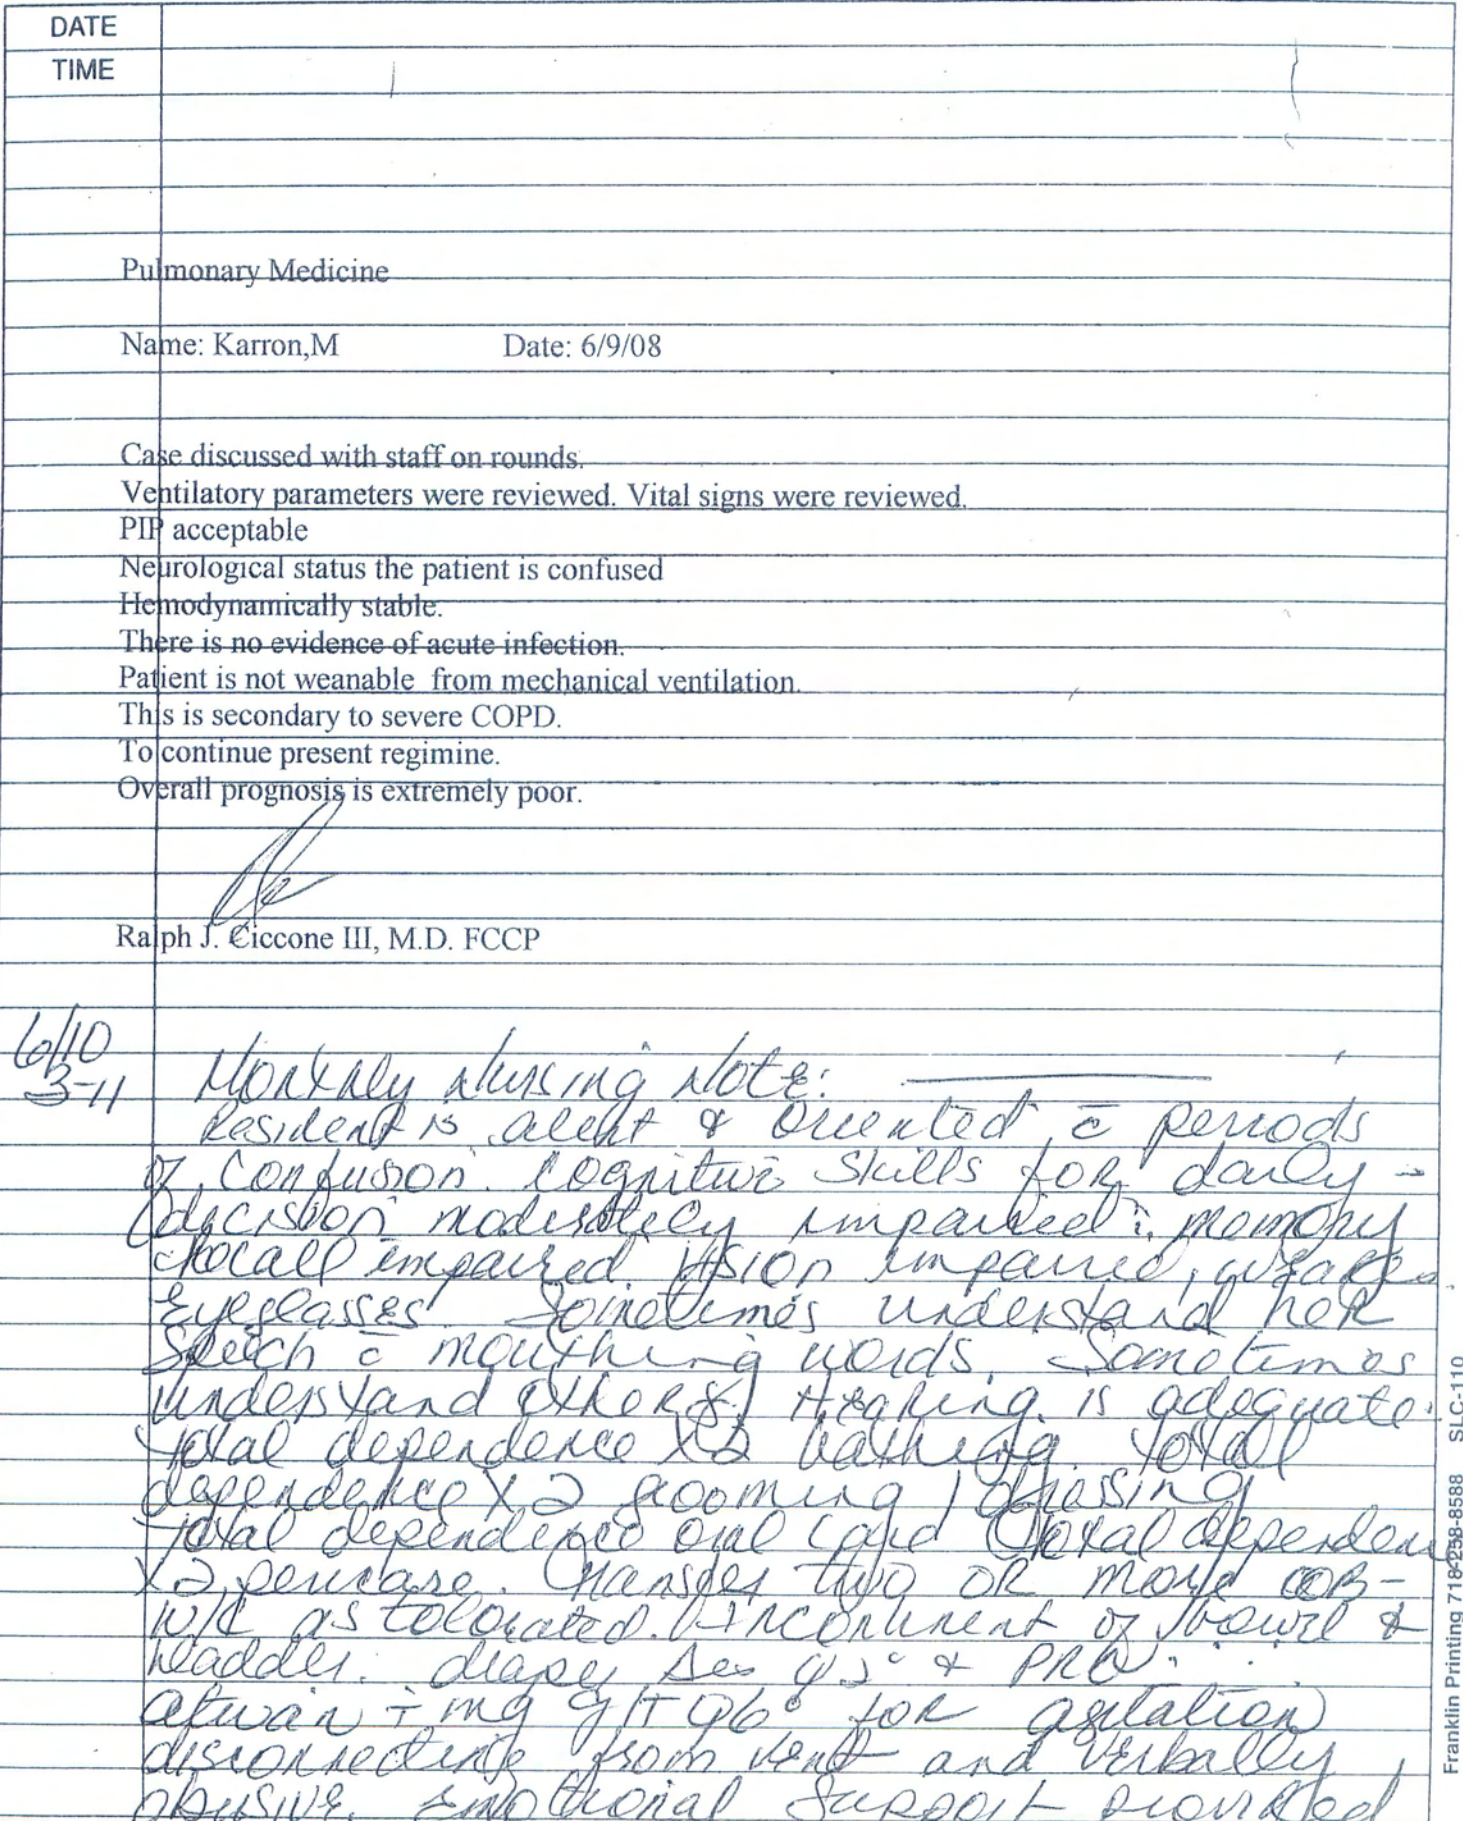 DATE
TIME
Pulmonary Medicine
Name: Karron,M Date: 6/9/08
Case discussed with staff on rounds.
Ventilatory parameters were reviewed. Vital signs were reviewed.
PIP acceptable
Neurological status the patient is confused
Hemodynamically stable.
There is no evidence of acute infection.
Patient is not weanable from mechanical ventilation.
This is secondary to severe COPD.
To continue present regimine.
Overall prognosis is extremely poor.
Ralph J. Ciccone III, M.D. FCCP
6/10
3-11 Monthly Nursing Note:
Resident is alert & Oriented c̄ periods
of Confusion. Cognitive Skills for daily -
decision moderately impaired. memory
recall impaired. Vision impaired, wears
Eyeglasses. Sometimes understand her
Speech c̄ mouthing words. Sometimes
understand others. Hearing is adequate.
total dependence x2 bathing. total
dependence x 2 grooming / dressing
total dependence oral care total dependen
x2 pericare. Transfer two or more OOB-
W/C as tolerated. Incontinent of bowel &
bladder. diaper & PRN.
ativan mg g/t q6° for agitation
disconnecting from vent and verbally
abusive. Emotional Support provided
Franklin Printing 718-258-8588 SLC-110